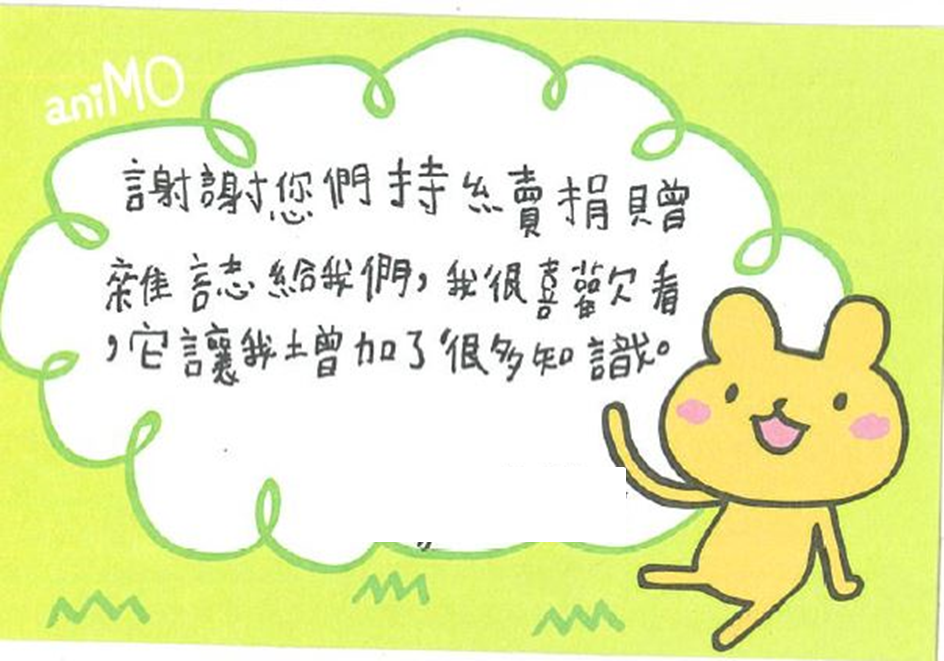 aniMO
謝謝您們持續捐贈
雜誌給我們,我很喜歡看
,它讓我增加了很多知識。